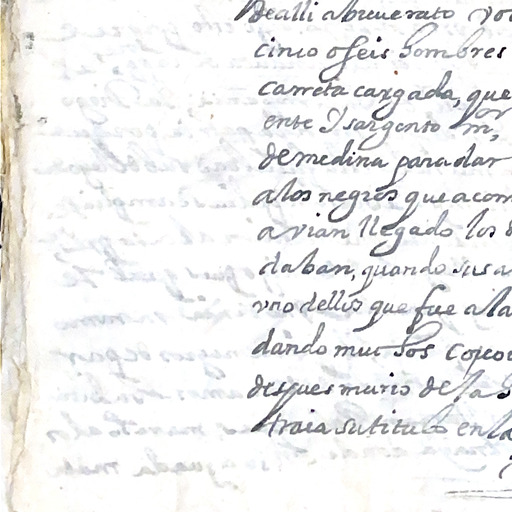 de alli a breue rato
cinco o seis hombres
carreta cargada, que
ente y sargento mor,
de medina para dar
a los negros que acom
avian llegado los
daban, quando sus a
vno dellos que fue a la
dando muchos
despues murio de la
traia su titulo en la